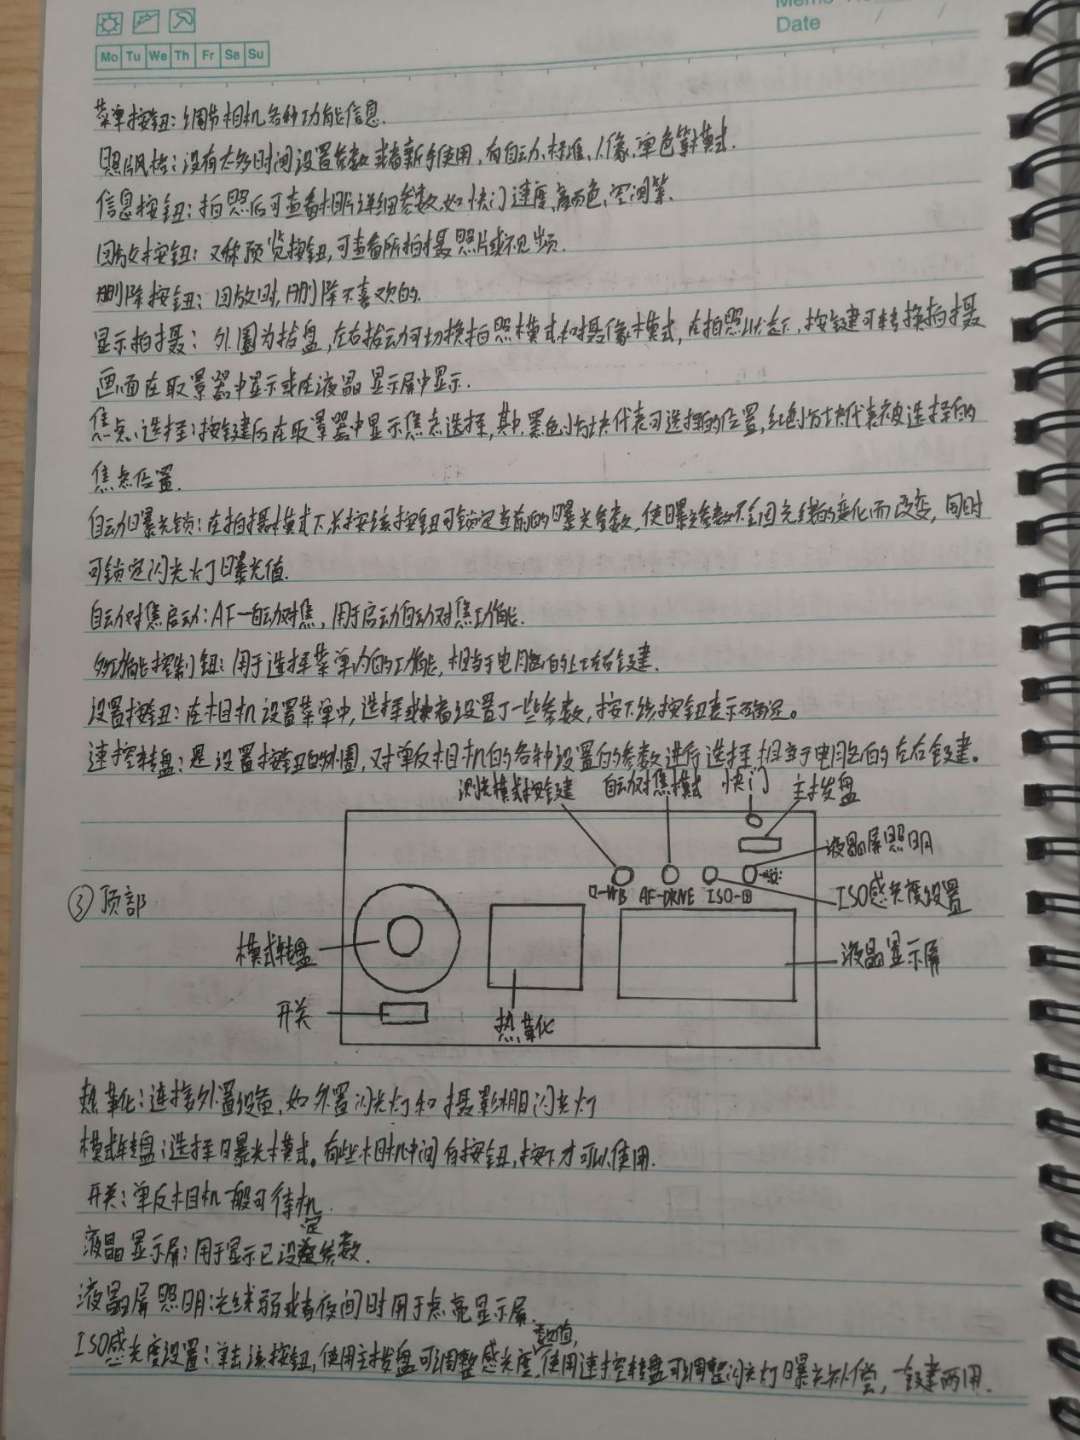 Memo No.
Date / /
Mo Tu We Th Fr Sa Su
菜单按钮：调节相机各种功能信息.
照片风格：没有太多时间设置参数或者新手使用，有自动、标准、人像、单色等模式.
信息按钮：拍照后可查看相片详细参数，如快门速度、高而色、空间等.
回放按钮：又称预览按钮，可查看所拍摄照片或视频.
删除按钮：回放时，删除不喜欢的.
显示拍摄：外圈为拨盘，左右拨动可切换拍照模式和摄像模式，在拍照状态下，按键可转换拍摄
画面在取景器中显示或在液晶显示屏中显示.
焦点选择：按键后在取景器中显示焦点选择，其中，黑色小方块代表可选择的位置，红色小方块代表被选择的
焦点位置.
自动曝光锁：在拍摄模式下，长按该按钮可锁定当前的曝光参数，使曝光参数不会因光线的变化而改变，同时
可锁定闪光灯曝光值.
自动对焦启动：AF—自动对焦，用于启动自动对焦功能.
多功能控制钮：用于选择菜单内的功能，相当于电脑的上下左右键.
设置按钮：在相机设置菜单中，选择或者设置了一些参数，按下该按钮表示确定。
速控转盘：是设置按钮的外圈，对单反相机的各种设置的参数进行选择，相当于电脑的左右键。
测光模式按键 自动对焦模式 快门 主拨盘
液晶屏照明
□-WB AF-DRIVE ISO-
ISO感光度设置
③顶部
模式转盘
液晶显示屏
开关
热靴
热靴：连接外置设备，如外置闪光灯和摄影棚闪光灯
模式转盘：选择曝光模式。有些相机中间有按钮，按下才可以使用.
开关：单反相机一般可待机
液晶显示屏：用于显示已设定参数.
液晶屏照明：光线弱或者夜间时用于点亮显示屏.
ISO感光度设置：单击该按钮，使用主拨盘可调整感光度数值，使用速控转盘可调整闪光灯曝光补偿，一键两用.